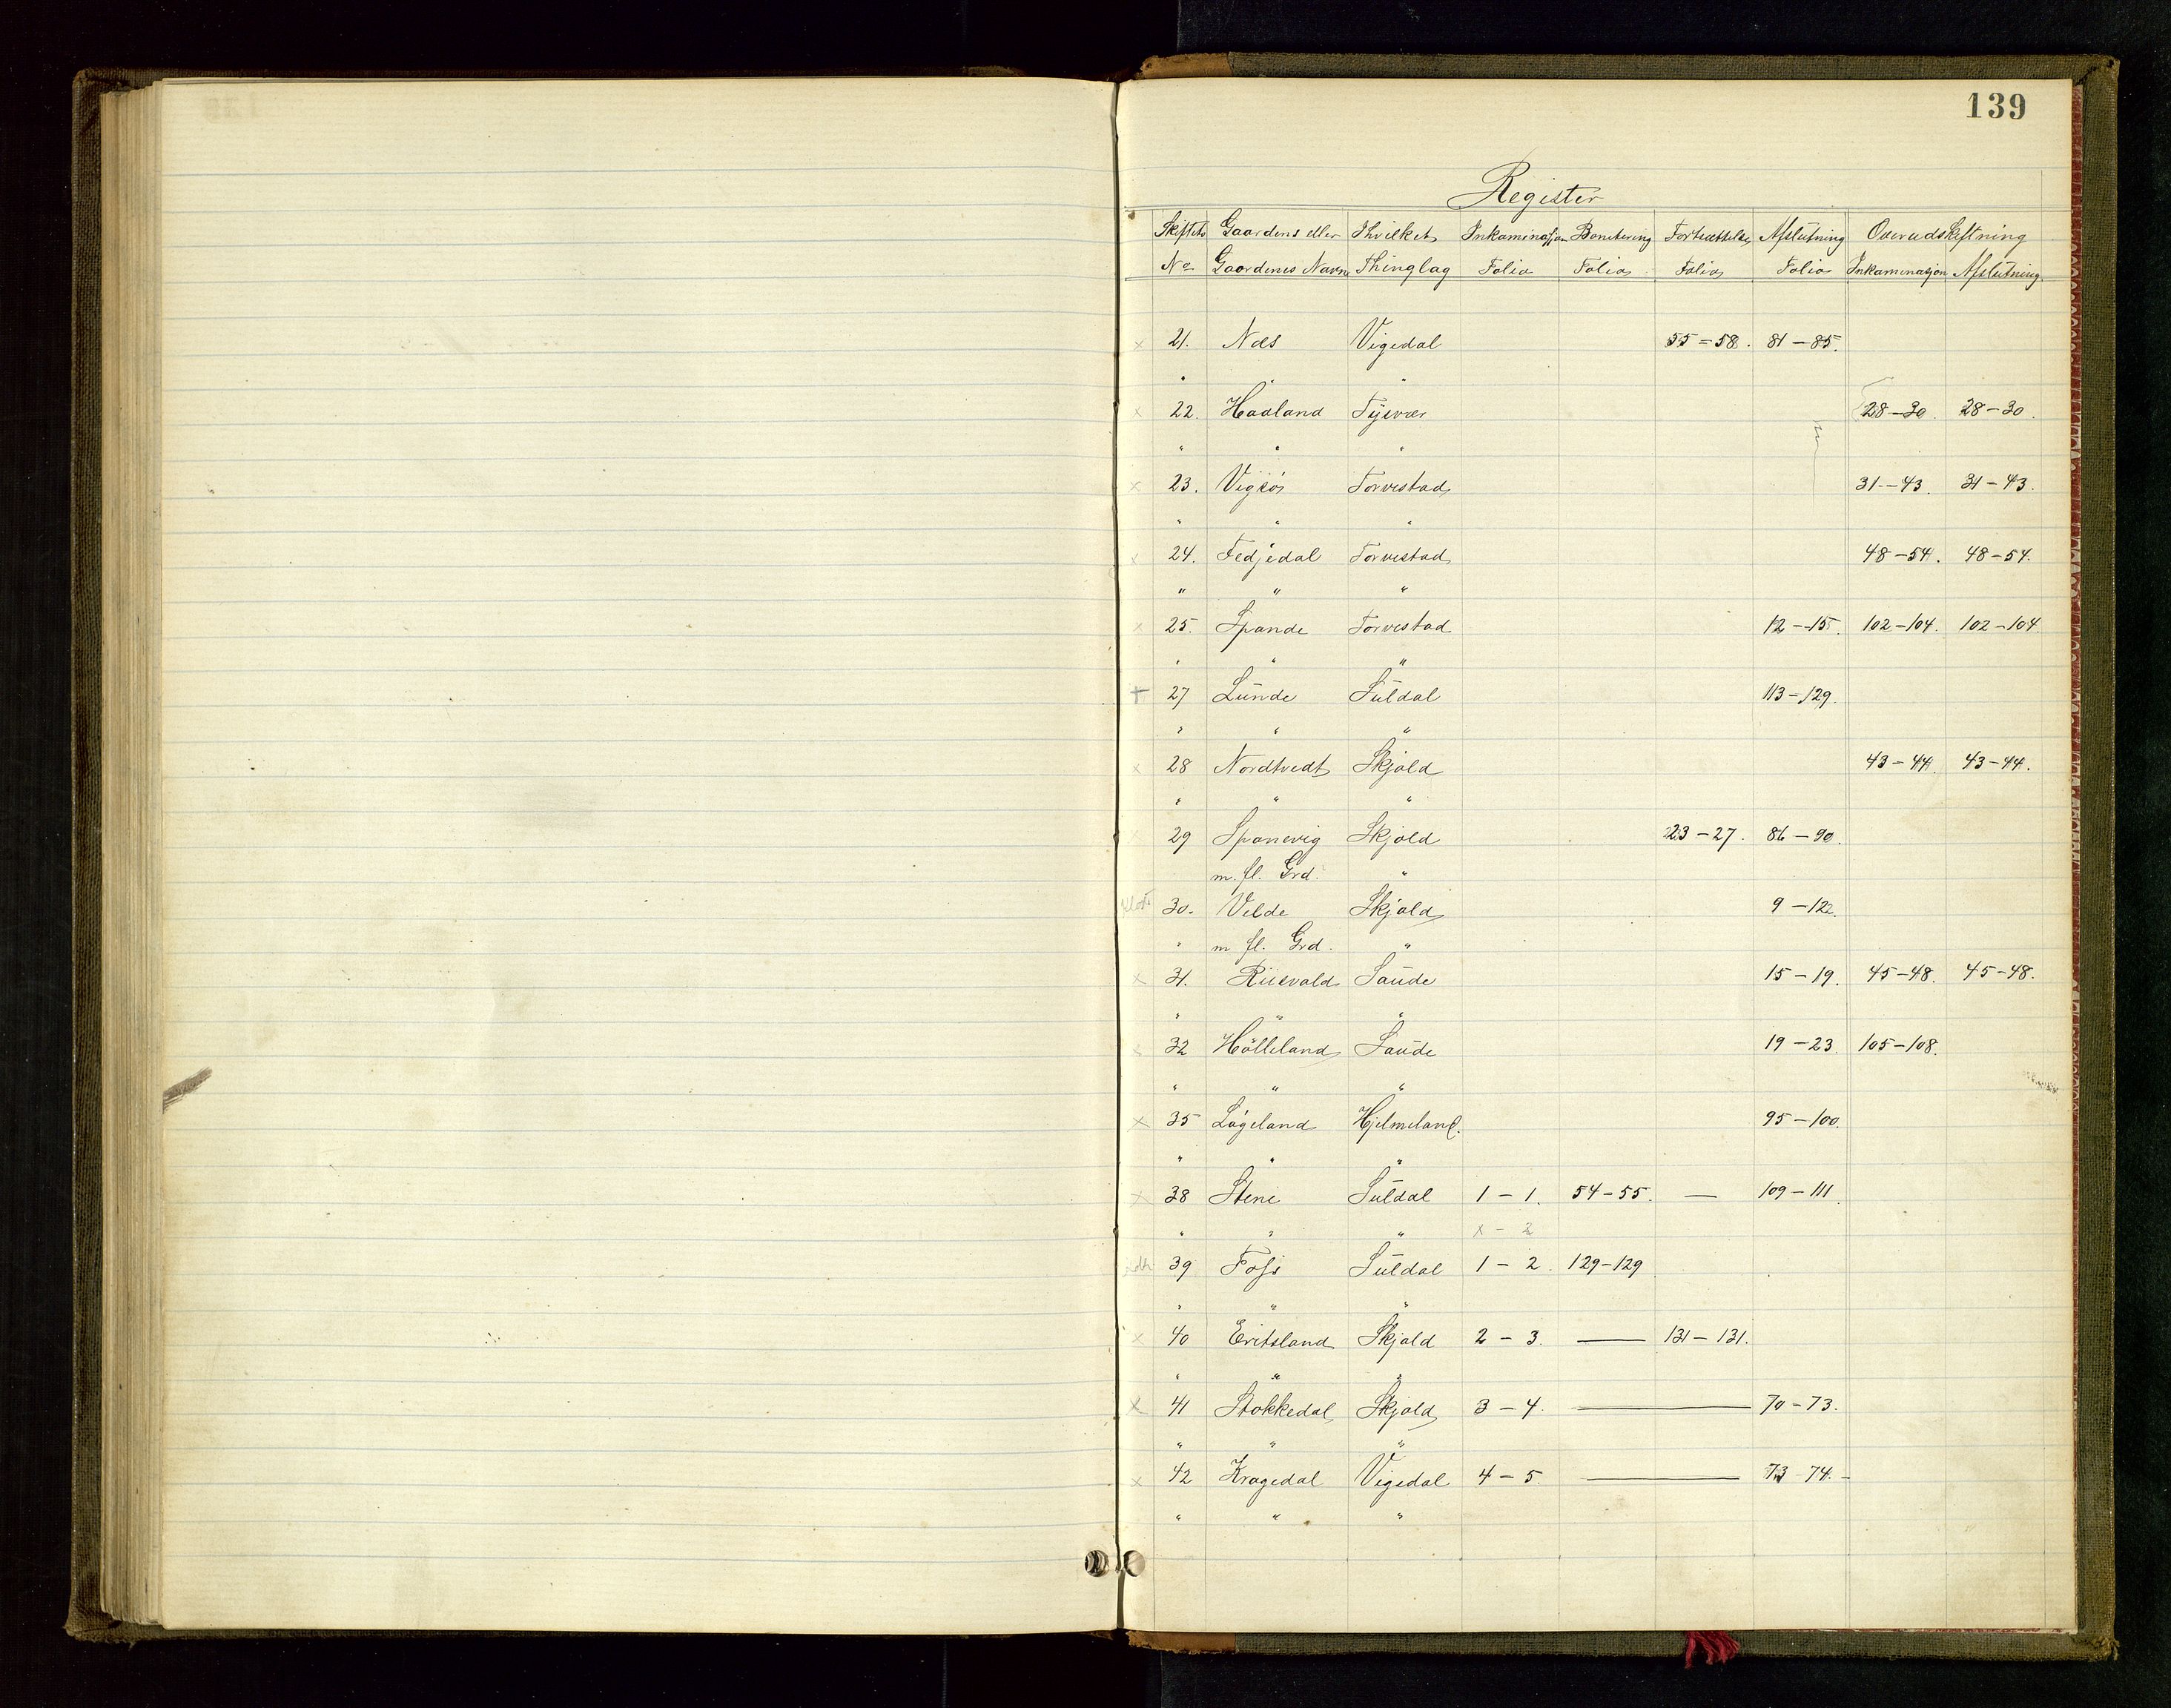 139
Register
Skiftets Gaardens eller I hvilket Inkaminasjon Bonitering Fortsættelse Afslutning Overudskiftning
No Gaardenes Navne Thinglag Folio Folio Folio Folio Inkaminasjon Afslutning
x 21. Næs Vigedal 55 – 58. 81 – 85.
" " "
x 22. Haaland Tysvær 28 – 30. 28 – 30.
" " "
x 23. Torvestad 31 – 43. 31 – 43.
" " "
x 24. Fedjedal Torvestad 48 – 54. 48 – 54.
" " "
x 25. Spande Torvestad 12 – 15. 102 – 104. 102 – 104.
" " "
+ 27 Lunde Suldal 113 – 129.
" " "
x 28 Nordtvedt Skjold 43 – 44. 43 – 44.
" " "
29 Spanevig Skjold 23 – 27. 86 – 90.
m. fl. Grd. "
30. Velde Skjold 9 – 122.
" m. fl. Grd. "
x 31. Riisvold Saude 15 – 19. 45 – 48. 45 – 48.
" " "
x 32 Hölleland Saude 19 – 23. 105 – 108.
" " "
x 35 Lögeland Hjelmeland. 95 – 100.
" " "
x 38 Stene Suldal 1 – 1. 54 – 55. — 109 – 111.
" " " x – 2
39 Foss Suldal 1 – 2. 129 – 129
" " "
x 40 Eritsland Skjold 2 – 3. — 131 – 131.
" " "
x 41 Stokkedal Skjold 3 – 4. — 70 – 73.
" " "
x 42 Kragedal Vigedal 4 – 5. — 73 – 74. –
" " "